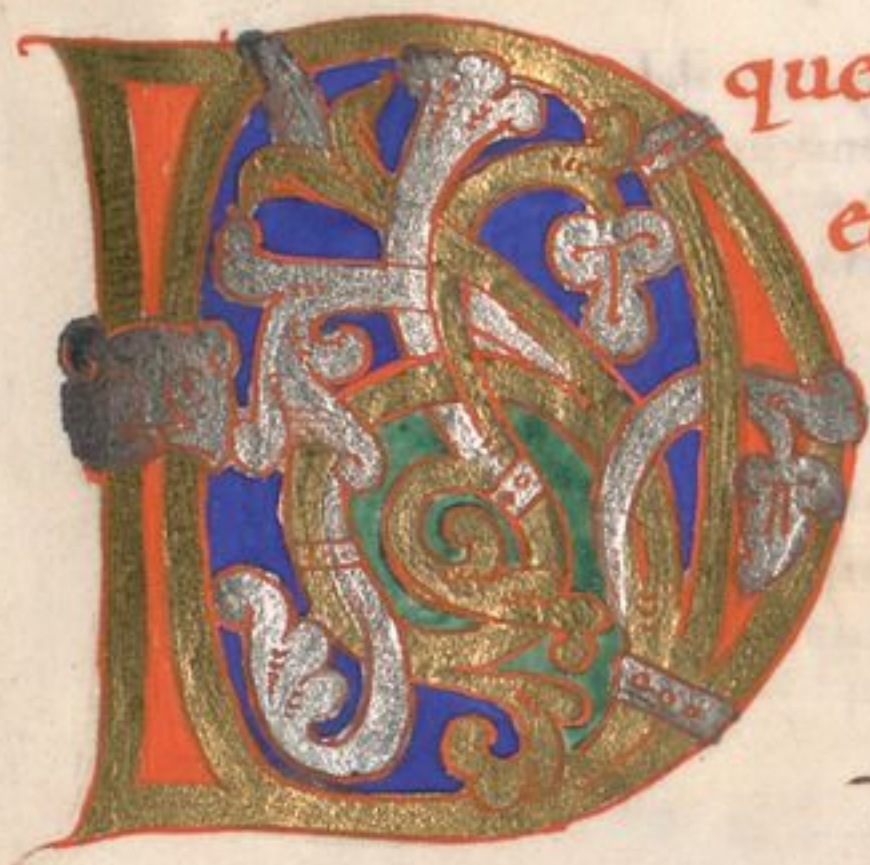 D que
e